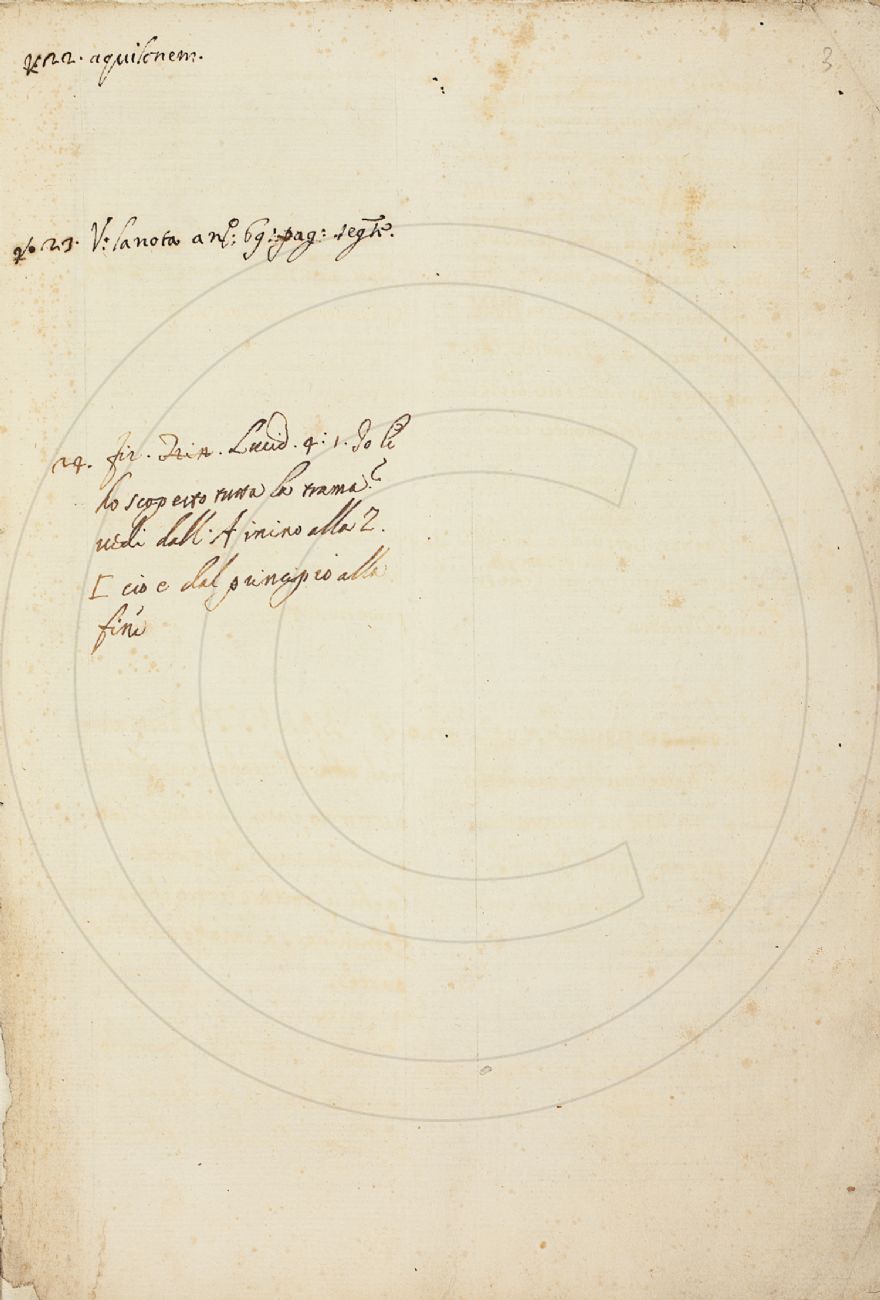 3
22. aquilonem.
23. V: la nota a nſ: 69: pag: segte.
24. fir. Trin. Lucid. 4: 1. Io li
ho scoperto tutta la trama
vedi dall: A inino alla Z.
[ cio e dal principio alla
fine